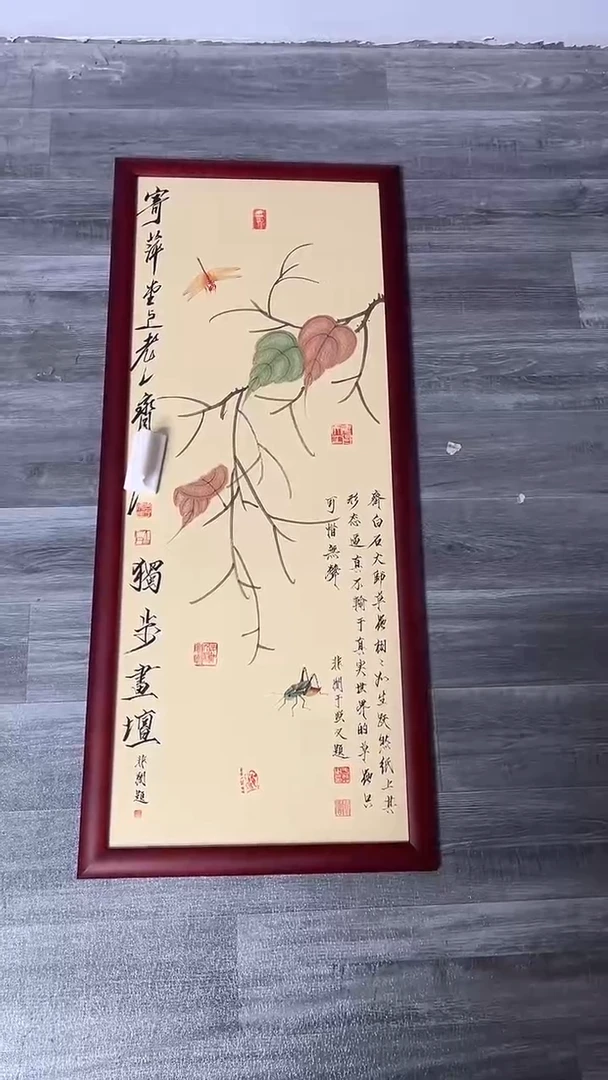 齊白石大師草蟲栩々如生跃然紙上其
形态逼真不輸于真实世界的草蟲只
可惜無聲
非闇于照又題
寄萍堂上老人齊
獨步畫壇
非闇題